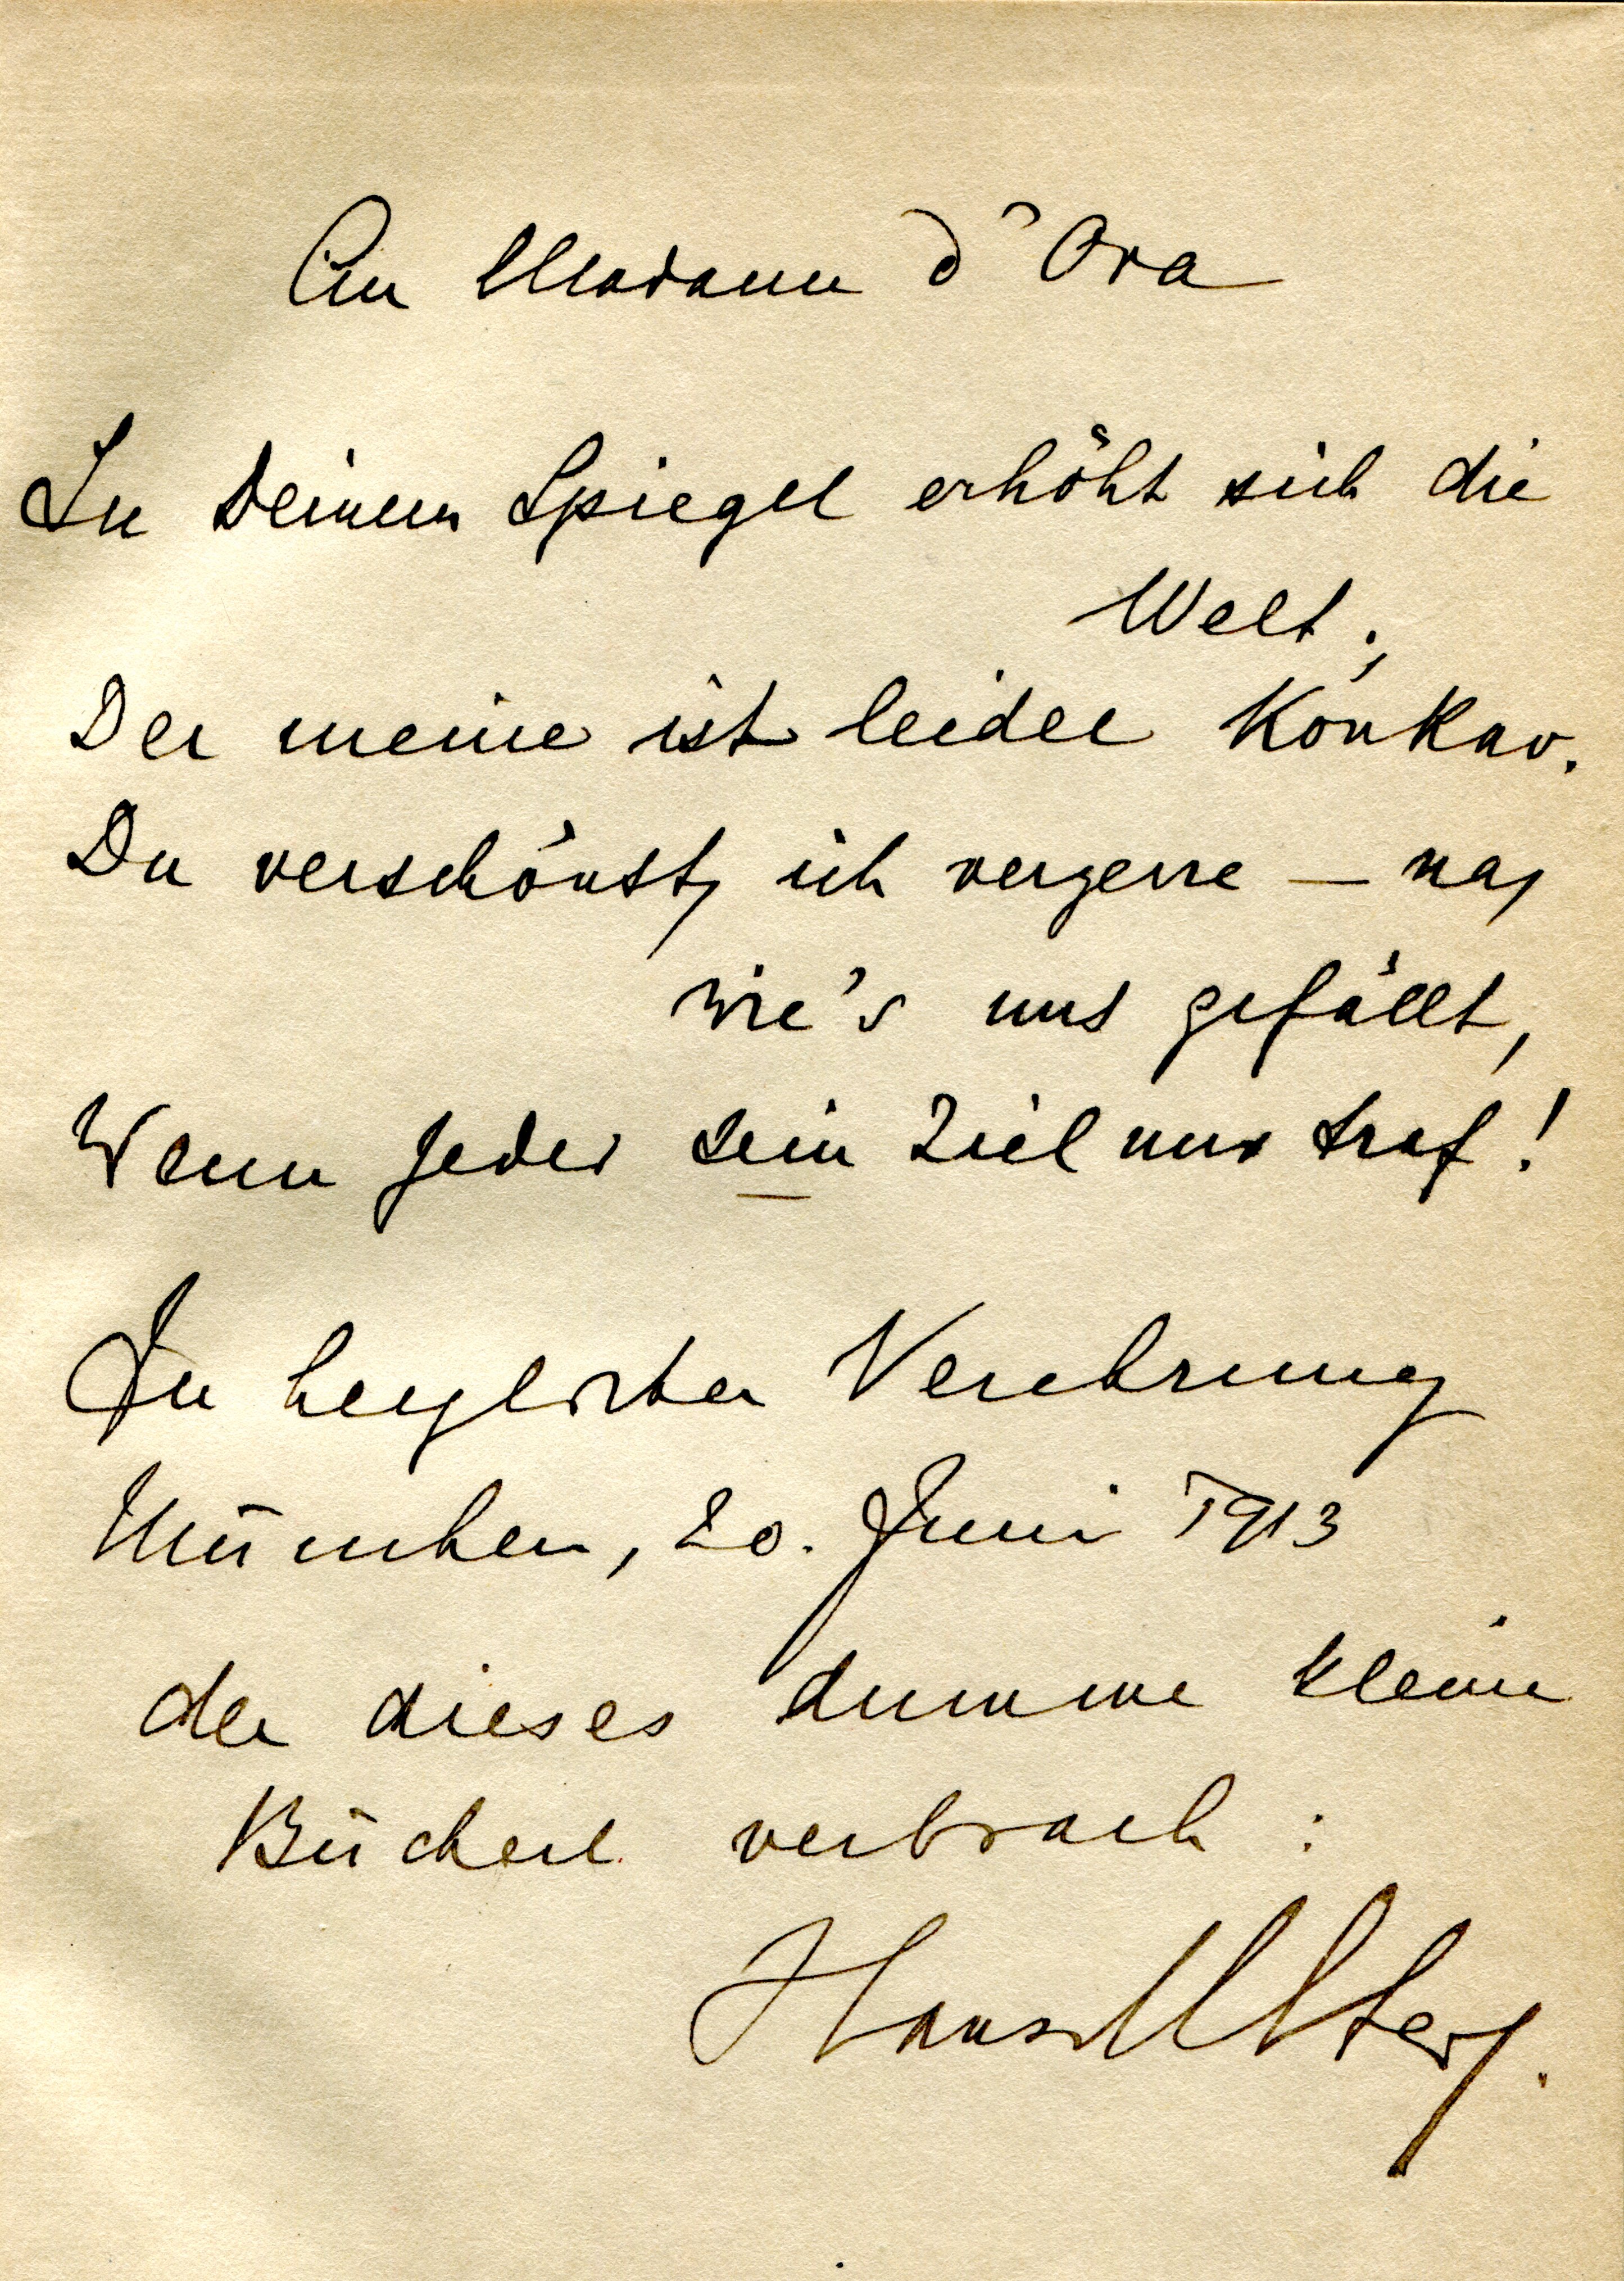 An Madame d'Ora
In Deinem Spiegel erhöht sich die
Welt;
Der meine ist leider Konkav.
Du verschönst, ich verzerre — na,
wie's uns gefällt,
Wenn Jeder sein Ziel nur traf!
In herzlicher Verehrung
München, 20. Juni 1913
der dieses dumme kleine
Bücherl verbrach: